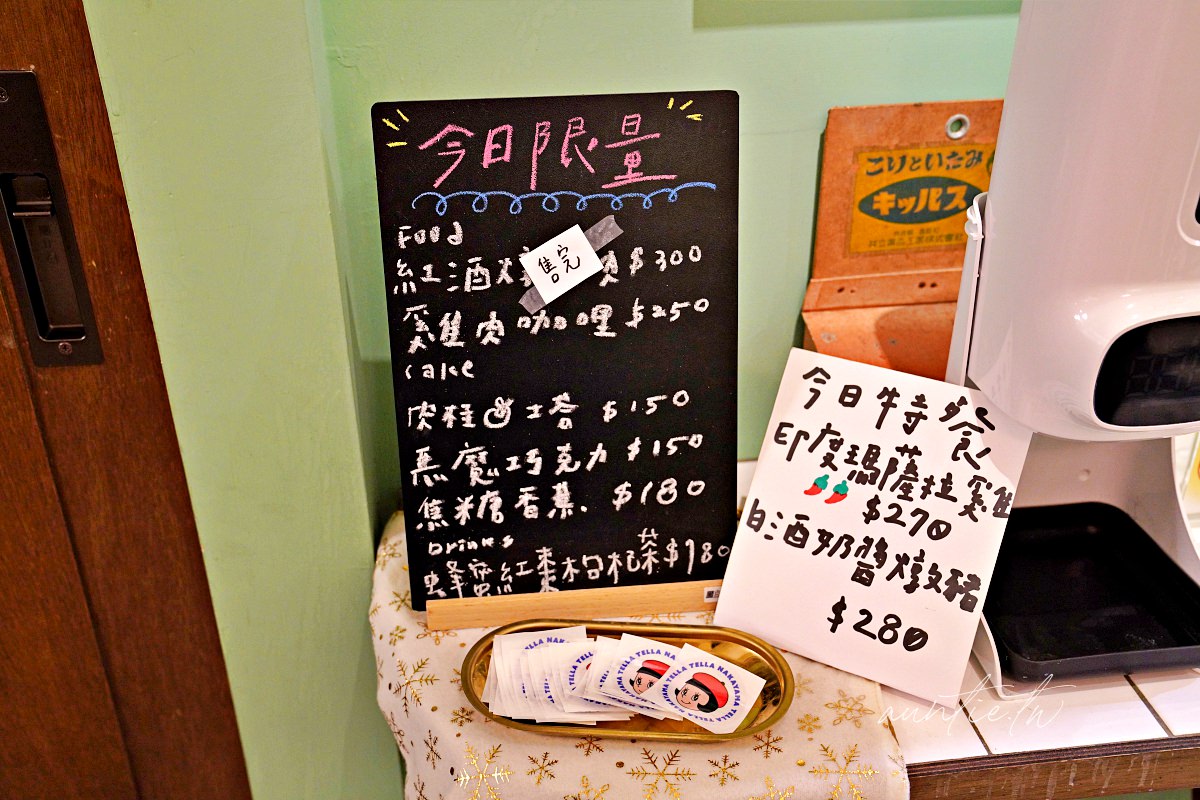 今日限量
Food
紅酒 $300
售完
雞肉咖哩 $250
cake
肉桂 塔 $150
惡魔巧克力 $150
焦糖香蕉 $180
Drinks
蜂蜜紅棗枸杞茶 $180
こりといたみ
キッパス
今日特餐
印度瑪薩拉雞
$270
白酒奶醬燉豬
$280
TELLA TELLA NAKAYAMA
TELLA TELLA NAKAYAMA
auntie.tw